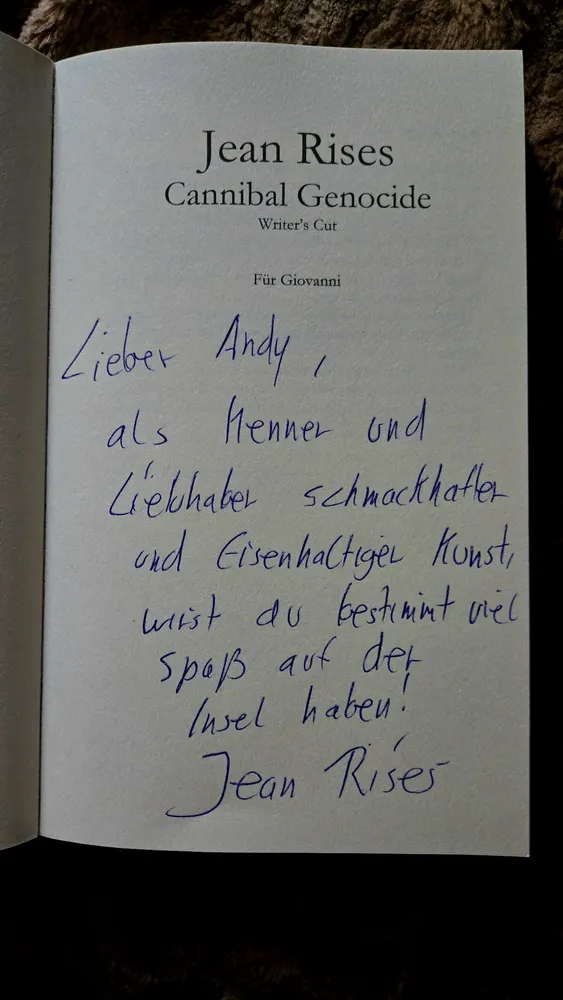 Jean Rises
Cannibal Genocide
Writer's Cut
Für Giovanni
Lieber Andy,
als Kenner und
Liebhaber schmackhafter
und Eisenhaltiger Kunst,
wirst du bestimmt viel
spaß auf der
Insel haben!
Jean Rises